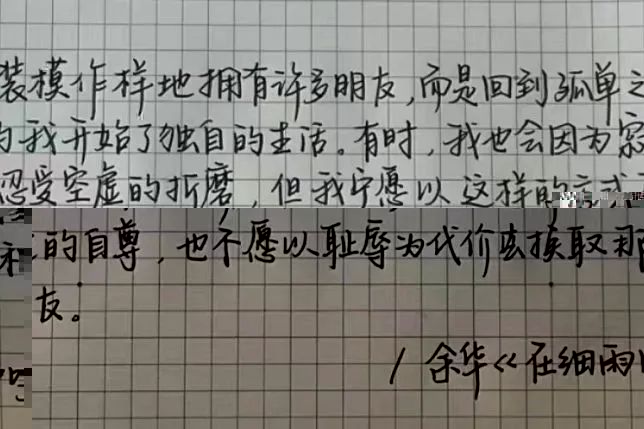 装模作样地拥有许多朋友，而是回到孤单之
我开始了独自的生活。有时，我也会因为
忍受空虚的折磨，但我宁愿以这样的方式
的自尊，也不愿以耻辱为代价去换取那
友。
/ 余华《在细雨